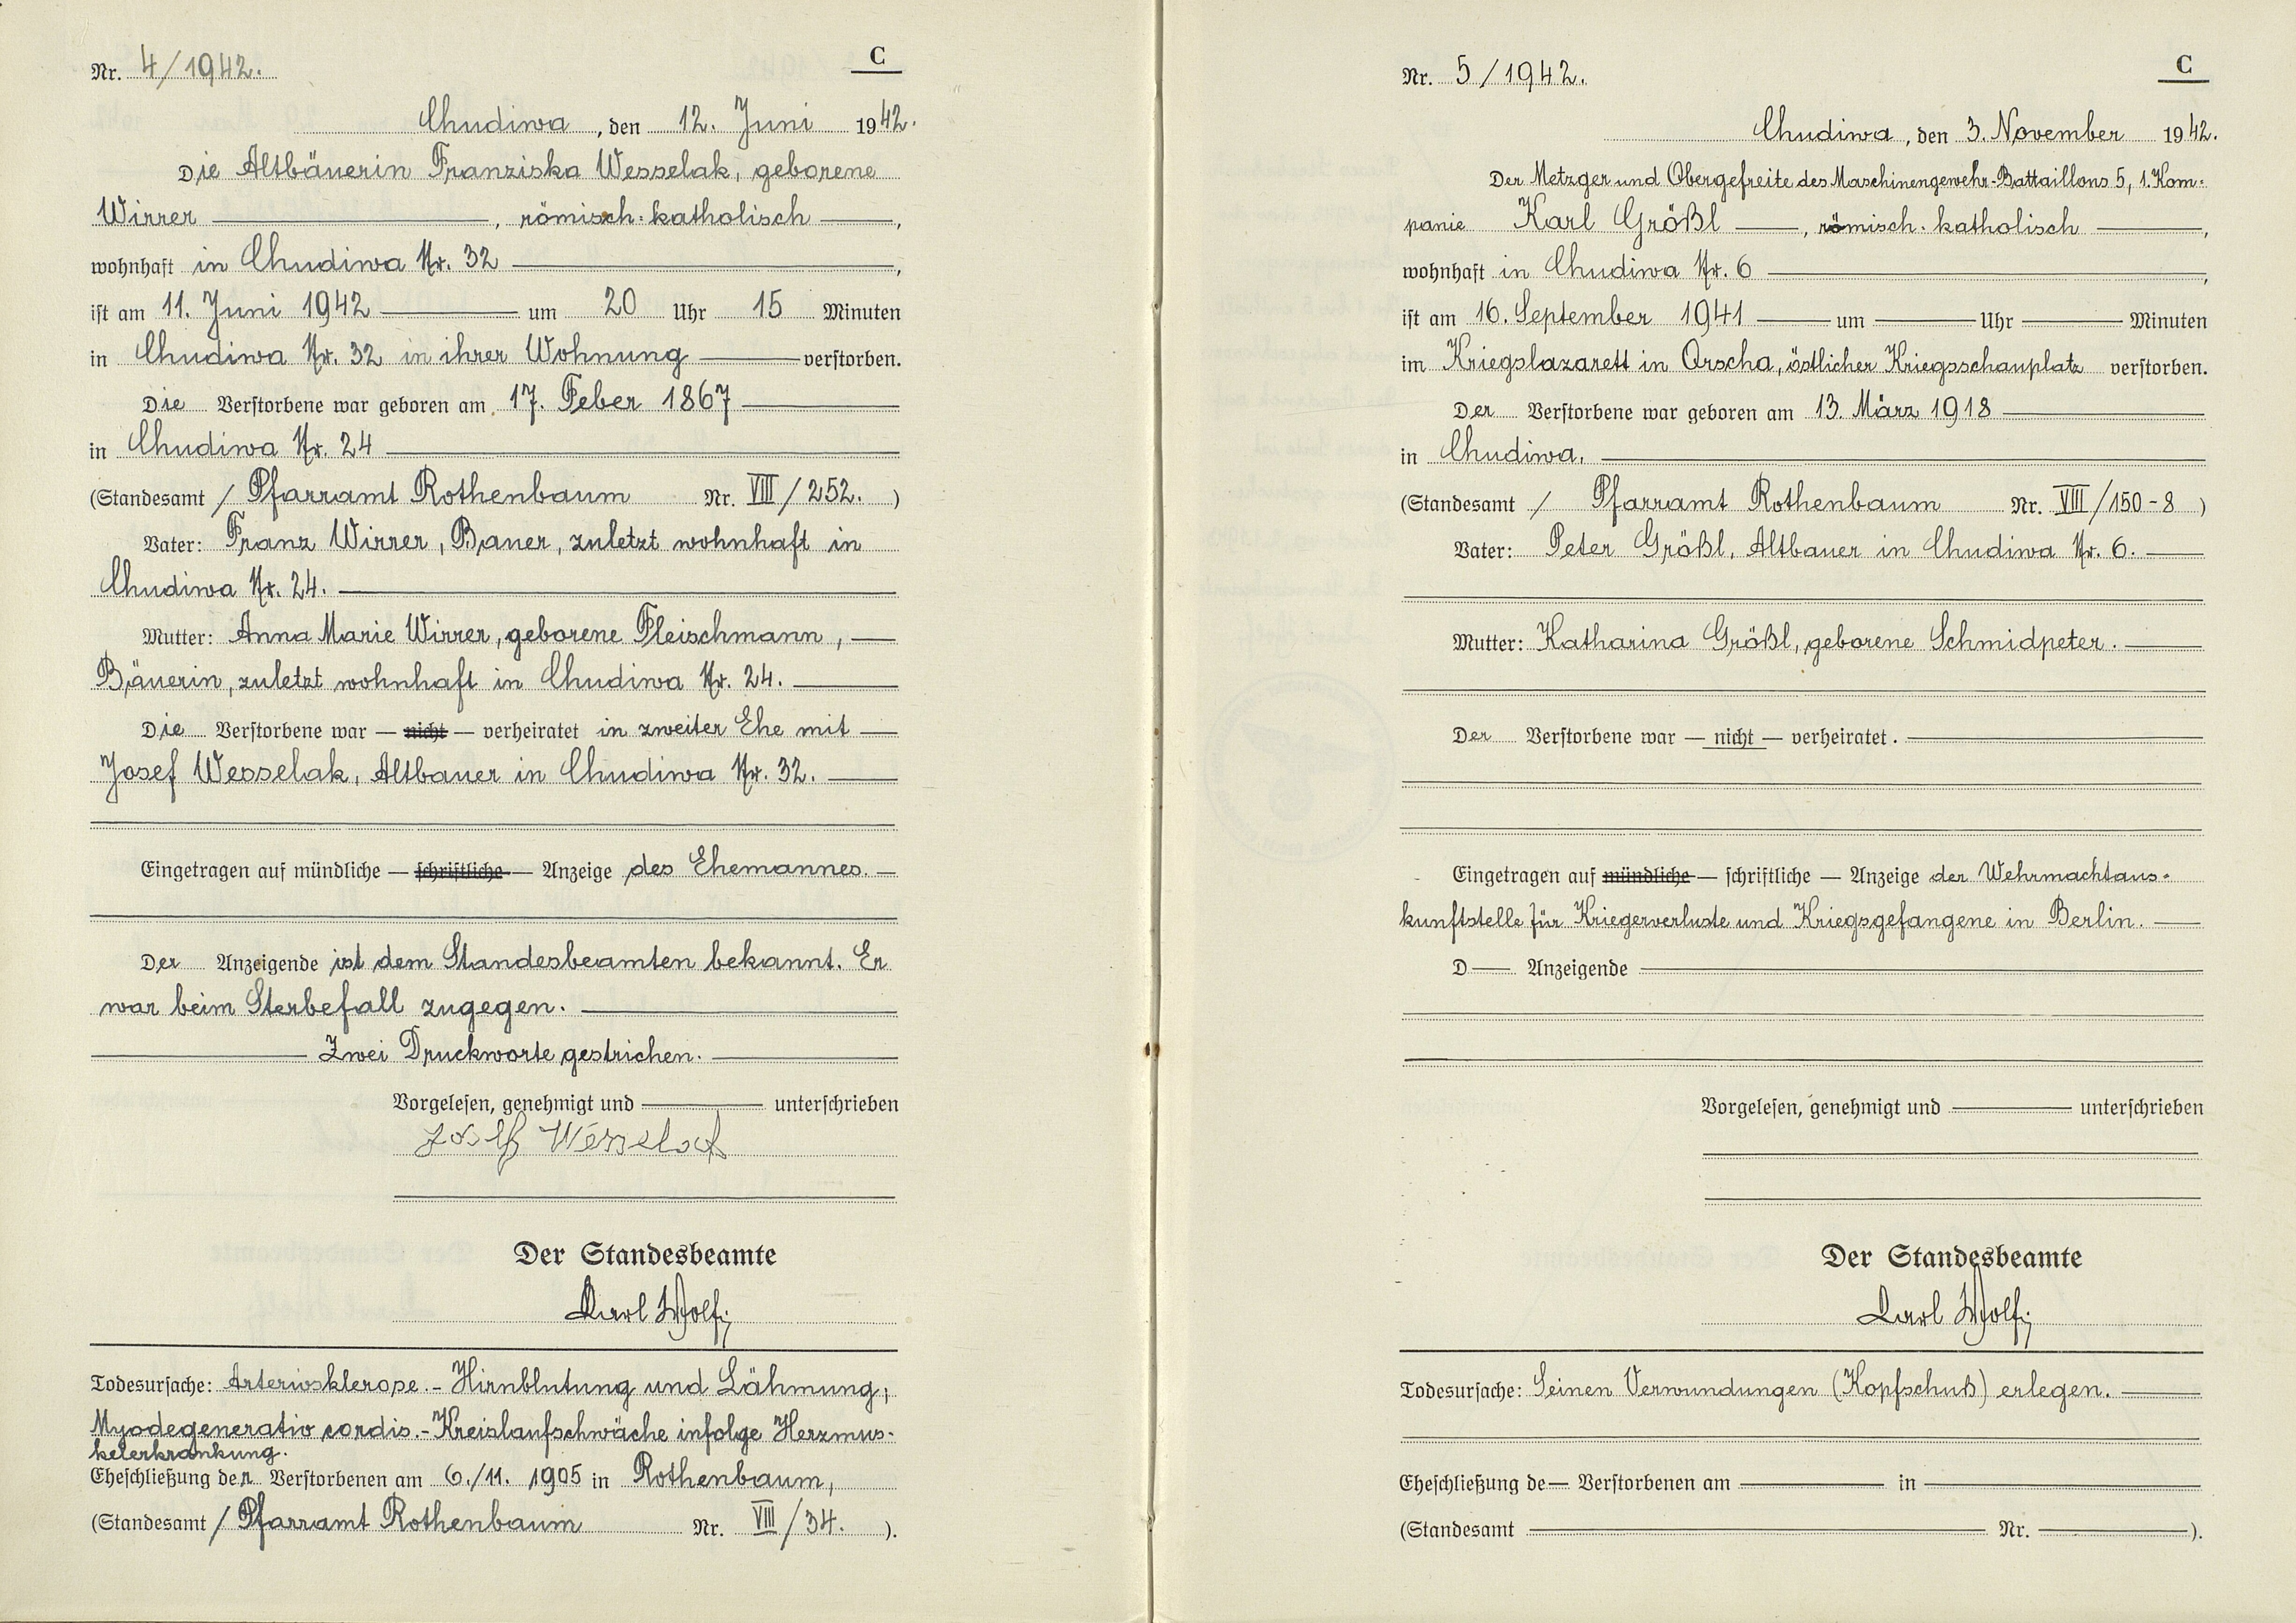 Nr. 4/1942.
C
Chudiwa, den 12. Juni 1942.
Die Altbäuerin Franziska Wesselak, geborene
Wirrer, römisch-katholisch,
wohnhaft in Chudiwa Nr. 32,
ist am 11. Juni 1942 um 20 Uhr 15 Minuten
in Chudiwa Nr. 32 in ihrer Wohnung verstorben.
Die Verstorbene war geboren am 17. Feber 1867
in Chudiwa Nr. 24
(Standesamt / Pfarramt Rothenbaum Nr. VIII/252.)
Vater: Franz Wirrer, Bauer, zuletzt wohnhaft in
Chudiwa Nr. 24.
Mutter: Anna Marie Wirrer, geborene Fleischmann,
Bäuerin, zuletzt wohnhaft in Chudiwa Nr. 24.
Die Verstorbene war — nicht — verheiratet in zweiter Ehe mit
Josef Wesselak, Altbauer in Chudiwa Nr. 32.
Eingetragen auf mündliche — schriftliche — Anzeige des Ehemannes.
Der Anzeigende ist dem Standesbeamten bekannt. Er
war beim Sterbefall zugegen.
Zwei Druckworte gestrichen.
Vorgelesen, genehmigt und unterschrieben
Josef Wesselak
Der Standesbeamte
Karl Wolf
Todesursache: Arteriosklerose.- Hirnblutung und Lähmung,
Myodegeneratio cordis.- Kreislaufschwäche infolge Herzmus-
kelerkrankung.
Eheschließung der Verstorbenen am 6./11. 1905 in Rothenbaum,
(Standesamt / Pfarramt Rothenbaum Nr. VIII/34.).
Nr. 5/1942.
C
Chudiwa, den 3. November 1942.
Der Metzger und Obergefreite des Maschinengewehr-Battaillons 5, 1. Kom-
panie Karl Größl, römisch-katholisch,
wohnhaft in Chudiwa Nr. 6,
ist am 16. September 1941 um Uhr Minuten
im Kriegslazarett in Orscha, östlicher Kriegsschauplatz verstorben.
Der Verstorbene war geboren am 13. März 1918
in Chudiwa.
(Standesamt / Pfarramt Rothenbaum Nr. VIII/150-8)
Vater: Peter Größl, Altbauer in Chudiwa Nr. 6.
Mutter: Katharina Größl, geborene Schmidpeter.
Der Verstorbene war — nicht — verheiratet.
Eingetragen auf mündliche — schriftliche — Anzeige der Wehrmachtaus-
kunftstelle für Kriegerverluste und Kriegsgefangene in Berlin.
D Anzeigende
Vorgelesen, genehmigt und unterschrieben
Der Standesbeamte
Karl Wolf
Todesursache: Seinen Verwundungen (Kopfschuß) erlegen.
Eheschließung de Verstorbenen am in
(Standesamt Nr. ).